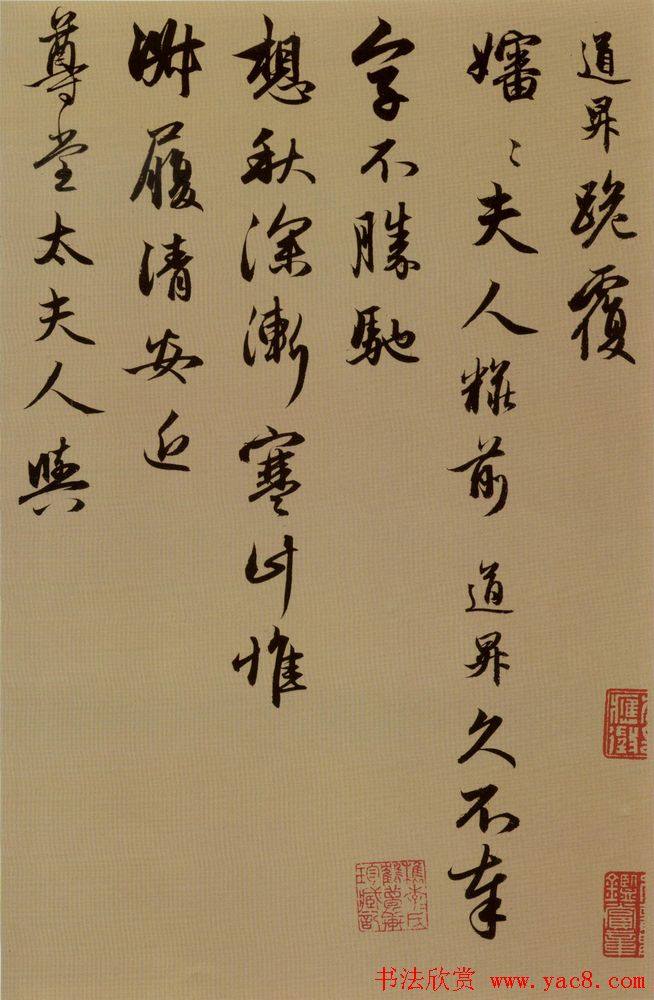 道昇跪覆
嬸〻夫人糚前道昇久不奉
字不勝馳
想秋深漸寒計惟
淑履清安近
尊堂太夫人與
书法欣赏 www.yac8.com